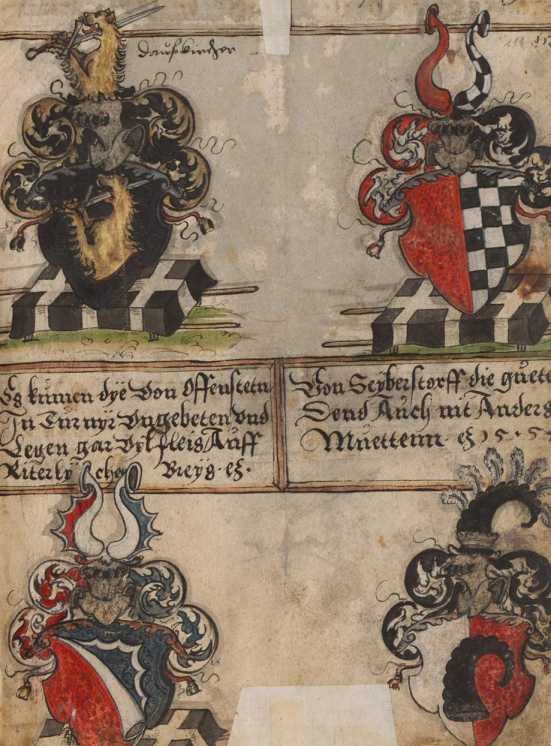 daufkircher
Es kumen dÿe von Offenstetn
In Turnÿr Ungebeten und
Legen gar Vÿl fleis Auff
Riterlÿ che Bieÿg · es ·
Von Seÿberstorff die guete
Send Auch mit Anders
Muettenn es 1 5 · 5